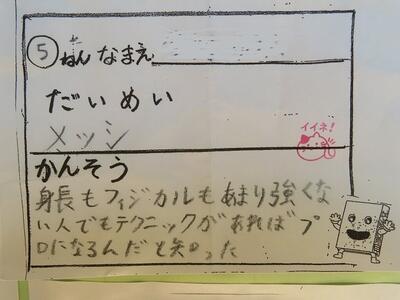 5 ねん なまえ
だいめい
メッシ
イイネ!
かんそう
身長もフィジカルもあまり強くな
い人でもテクニックがあればプ
ロになるんだと知った